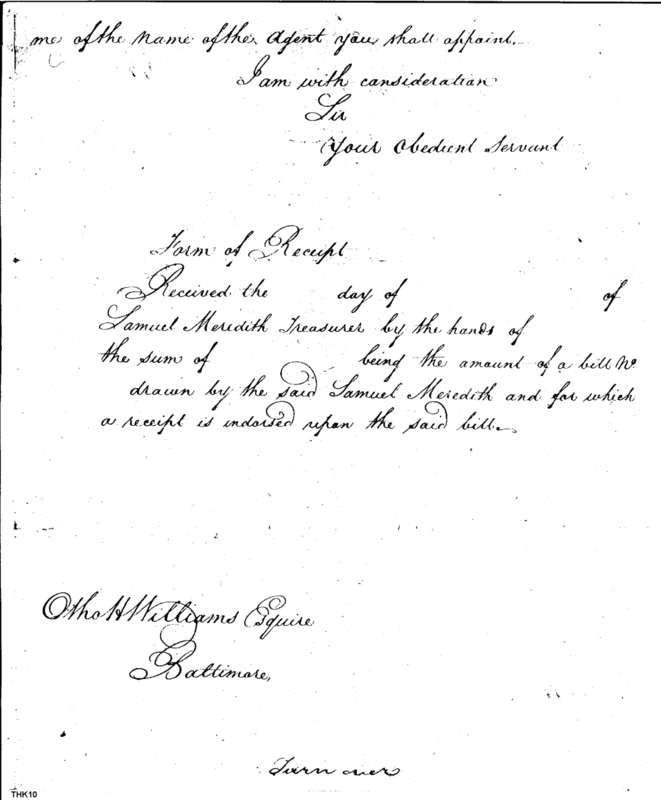 me of the Name of the Agent you shall appoint.
I am with consideration
Sir
Your Obedient Servant
Form of Receipt
Received the day of of
Samuel Meredith Treasurer by the hands of
the sum of being the amount of a bill No.
drawn by the said Samuel Meredith and for which
a receipt is indorsed upon the said bill.
Otho H Williams Esquire
Baltimore,
Turn over
THK10